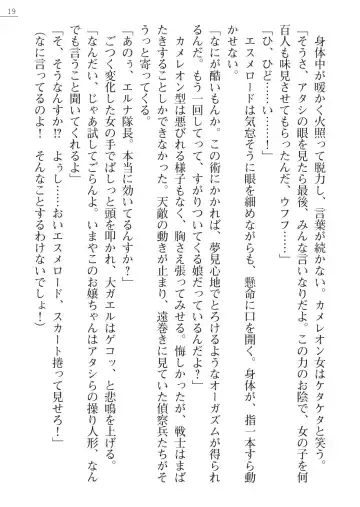 19
身体中が暖かく火照って脱力し、言葉が続かない。カメレオン女はケタケタと笑う。
「そうさ、アタシの眼を見たら最後、みんな言いなりだよ。この力のお陰で、女の子を何
百人も味見させてもらったんだ、ウフフ……」
「ひ、ひど……い！」
エスメロードは気怠そうに眼を細めながらも、懸命に口を開く。身体が、指一本すら動
かせない。
「なにが酷いもんか。この術にかかれば、夢見心地でとろけるようなオーガズムが得られ
るんだ。もう一回してって、すがりついてくる娘だっているんだよ？」
カメレオン型は悪びれる様子もなく、胸さえ張ってみせる。悔しかったが、戦士はまば
たきすることしかできなかった。天敵の動きが止まり、遠巻きに見ていた偵察兵たちがそ
うっと寄ってくる。
「あのぅ、エルナ隊長。本当に効いてるんすか？」
ごつく変化した女の手でばしっと頭を叩かれ、大ガエルはゲコッ、と悲鳴を上げる。
「なんだい、じゃあ試してごらんよ。いまやこのお嬢ちゃんはアタシらの操り人形、なん
でも言うこと聞いてくれるよ」
「そ、そうなんすか⁉　よぅし……おいエスメロード、スカート捲って見せろ！」
（なに言ってるのよ！　そんなことするわけないでしょ！）